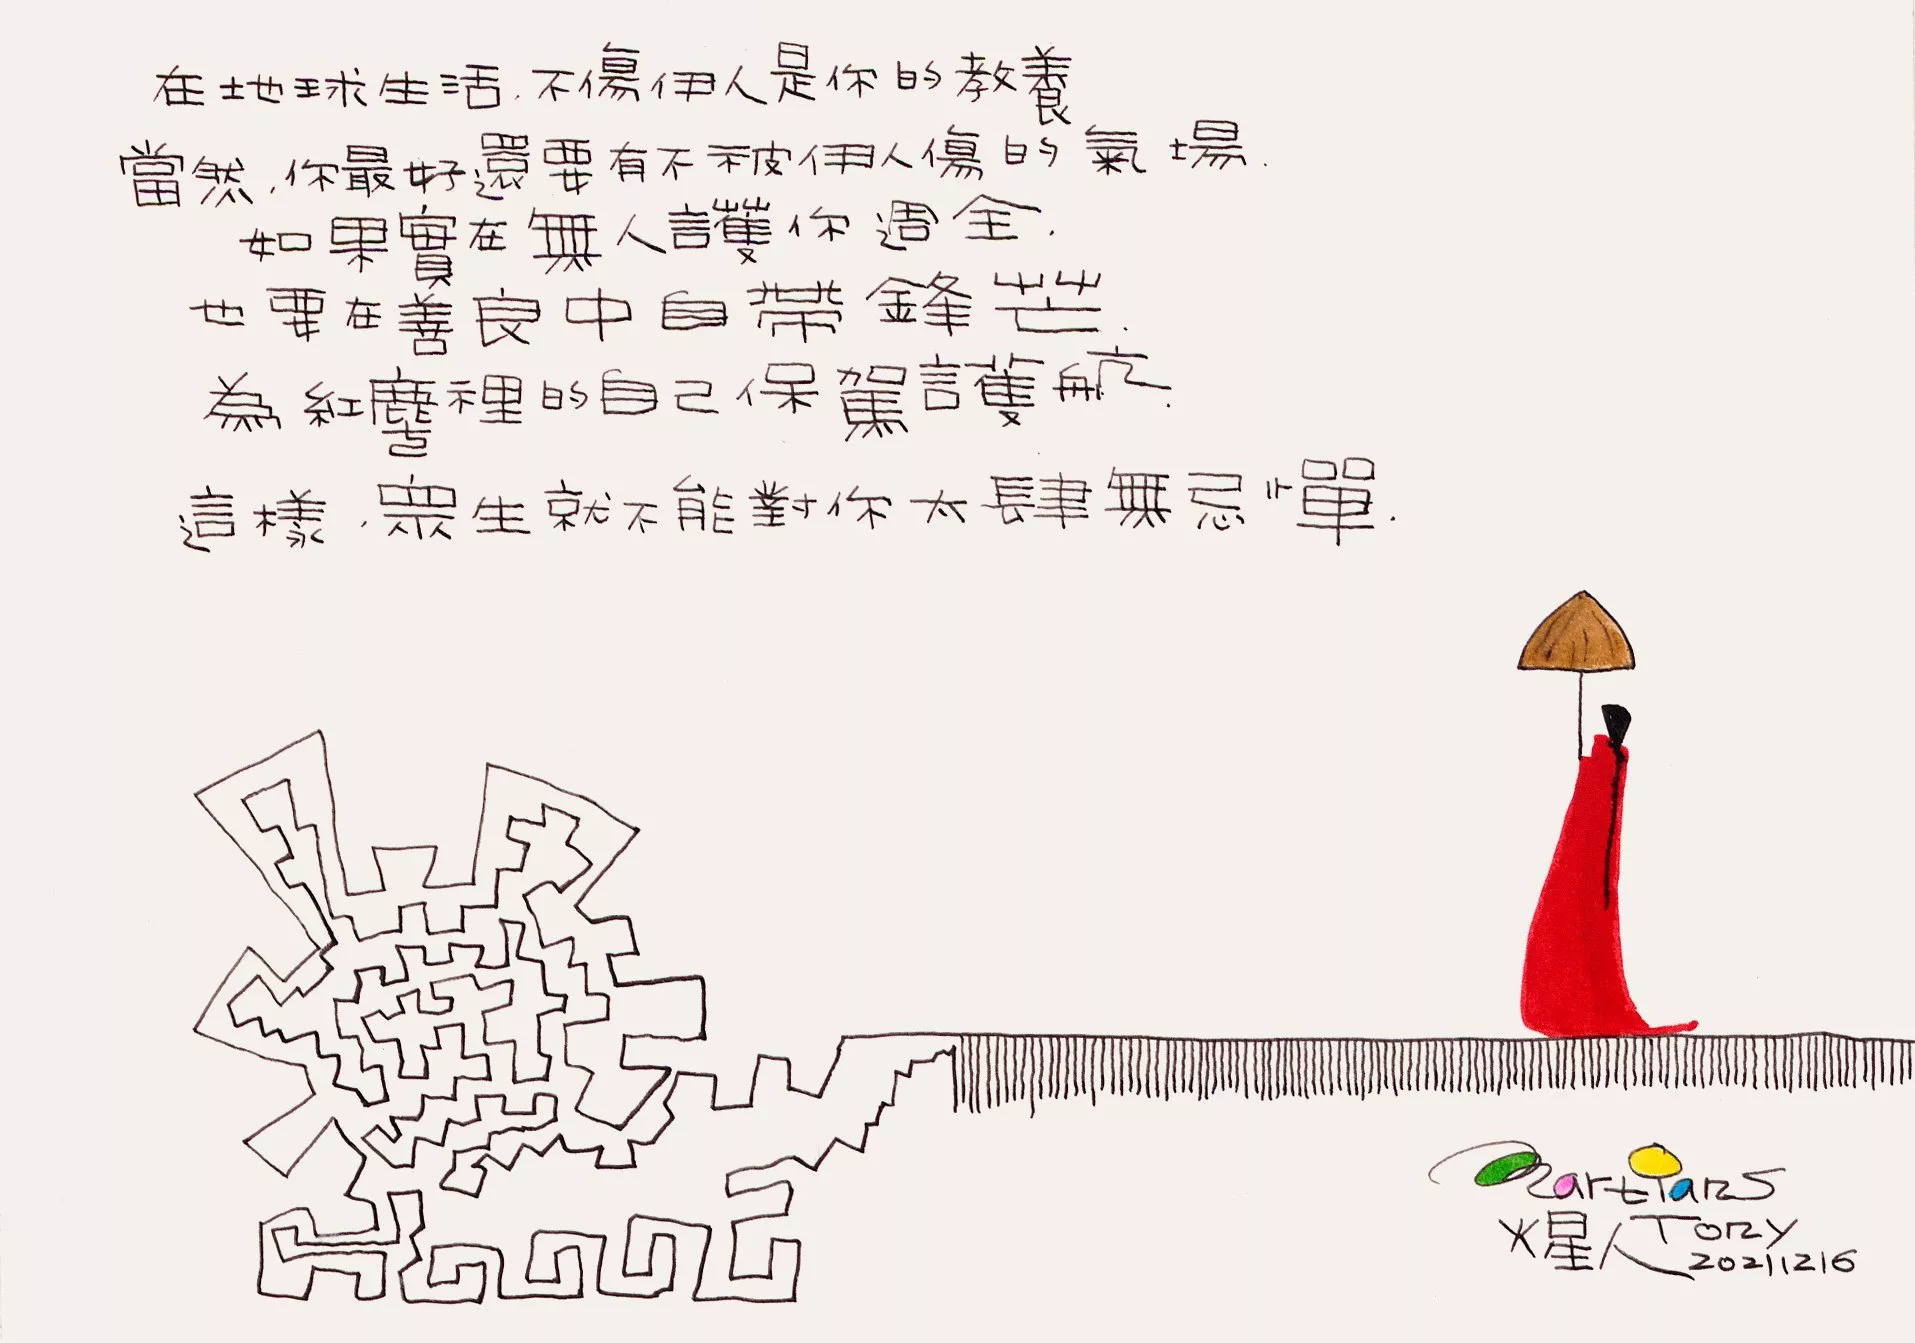 在地球生活.不傷伊人是你的教養
當然.你最好還要有不被伊人傷的氣場.
如果實在無人護你週全.
也要在善良中自帶鋒芒.
為紅塵裡的自己保駕護航.
這樣.眾生就不能對你太肆無忌憚.
Martians
火星人Tory
20211216